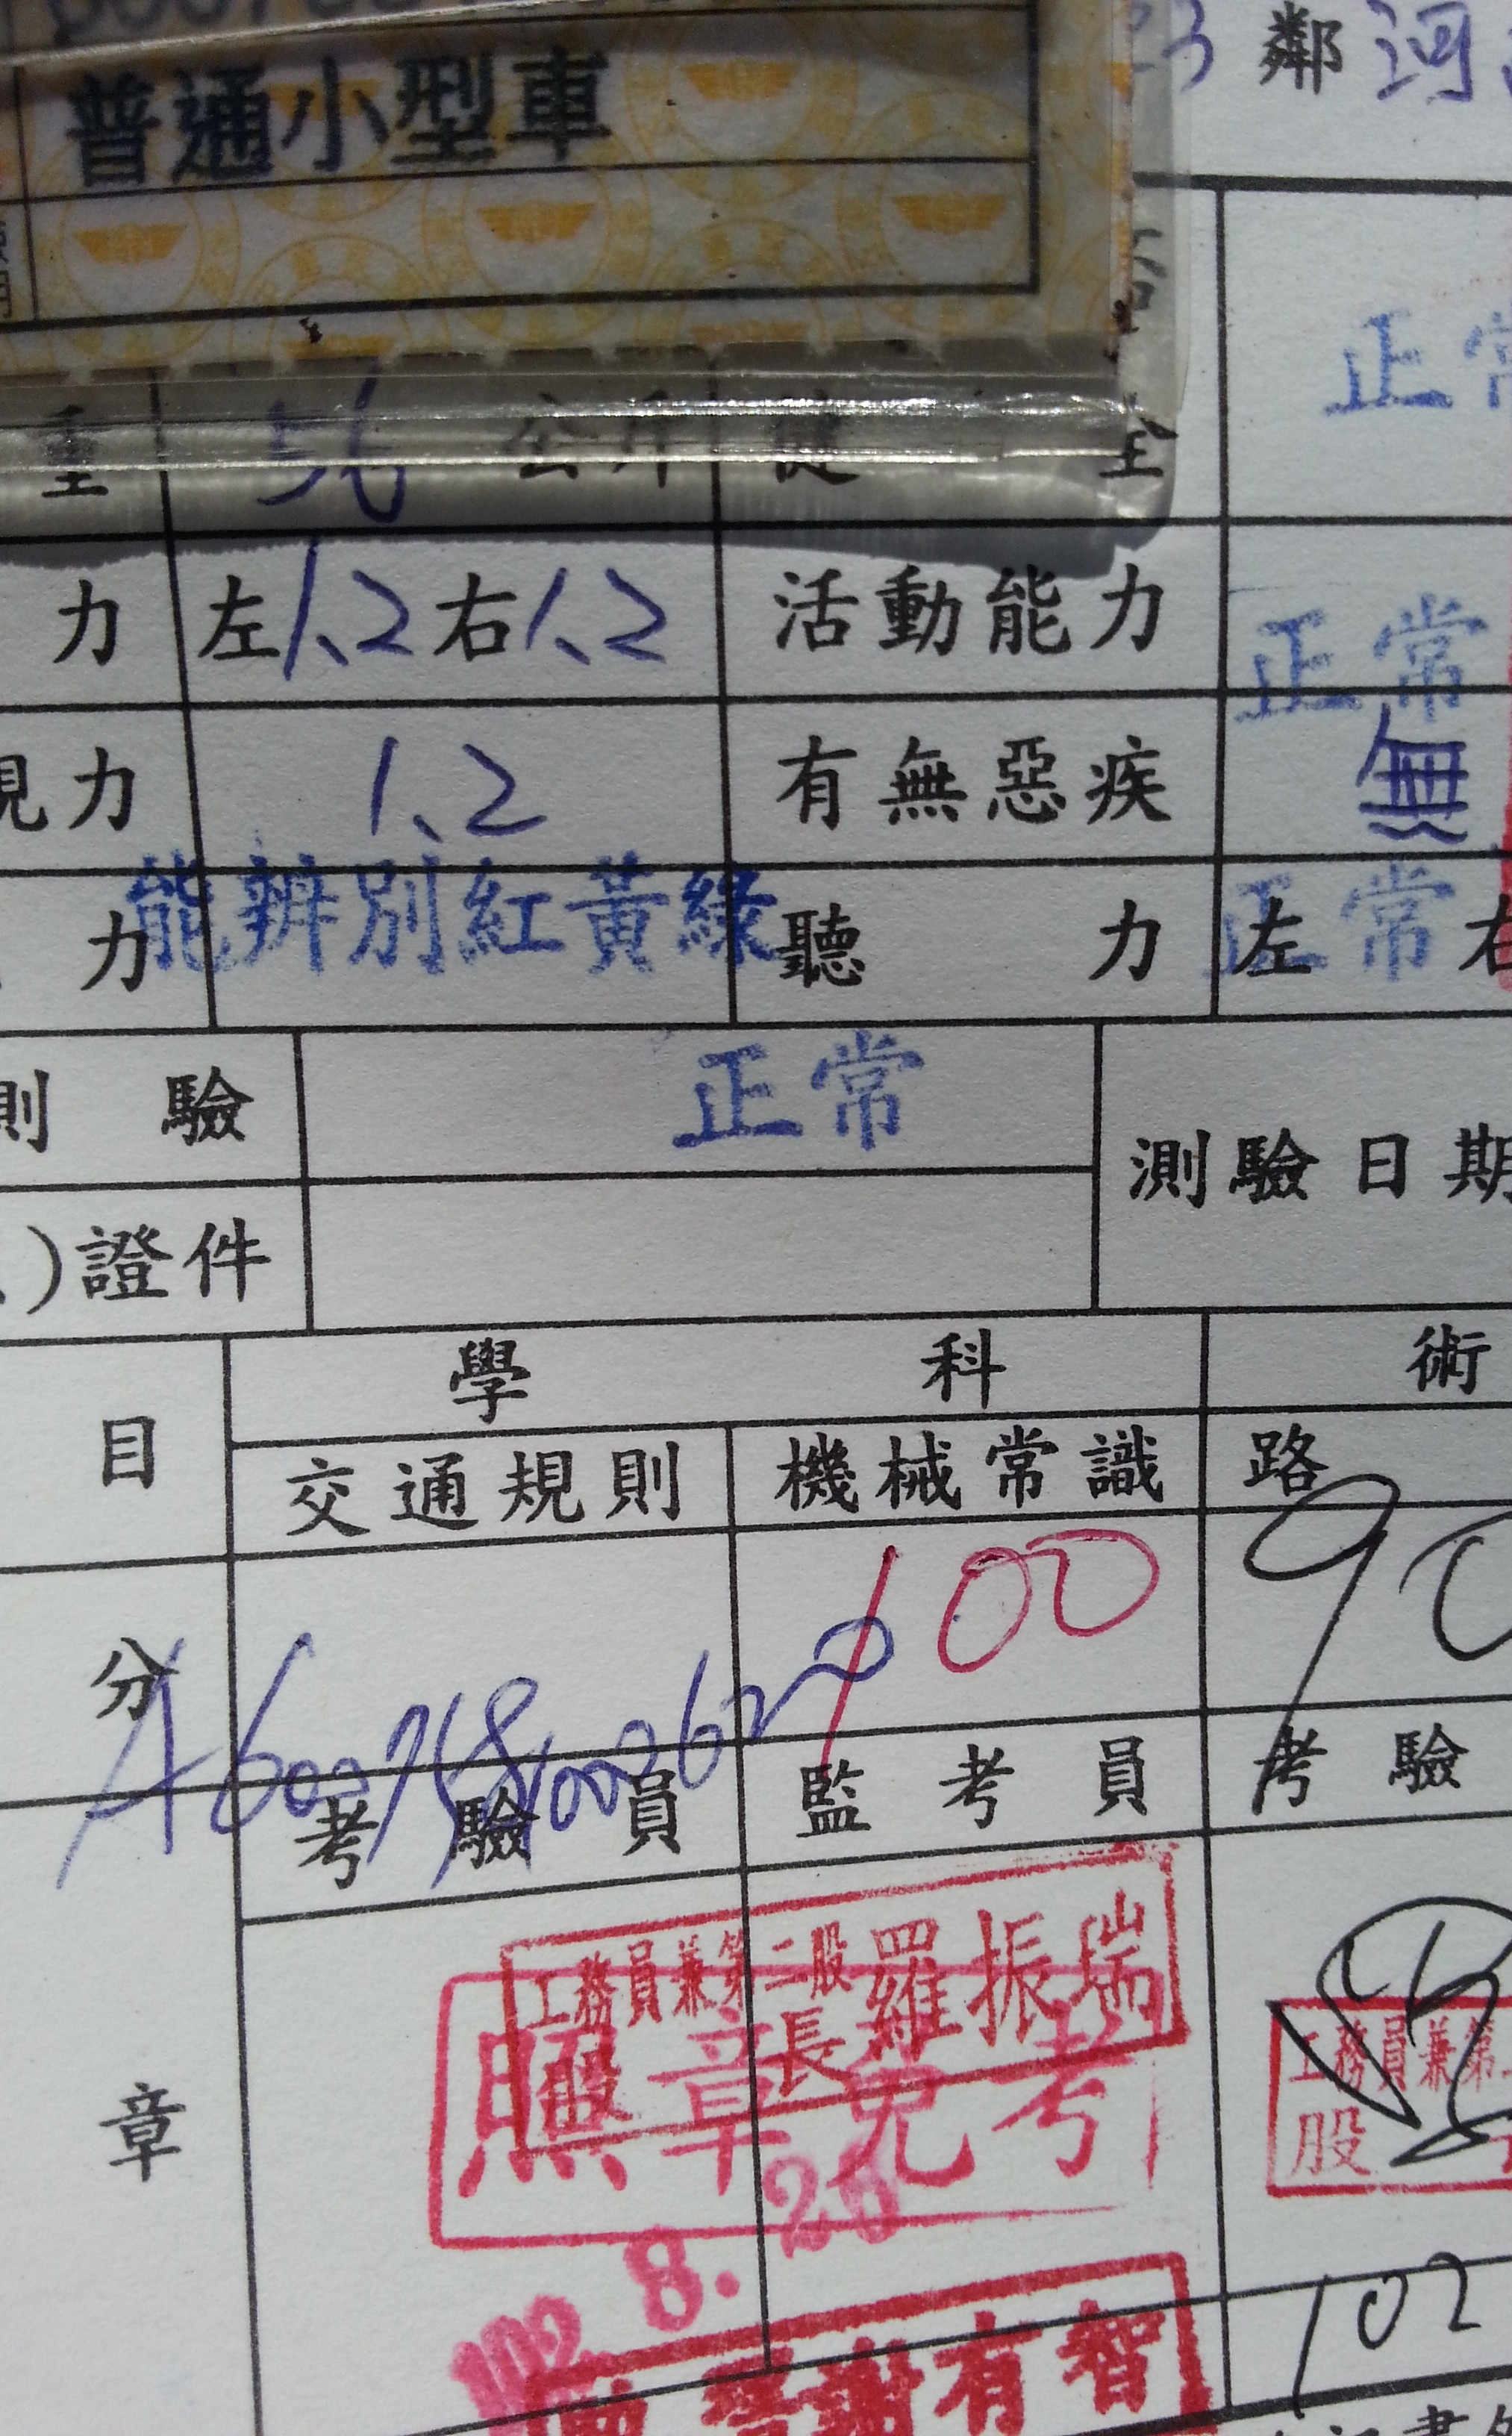 普通小型車
鄰 河
正
重 56 公斤 健 全
力 左 1.2 右 1.2 活動能力 正常
視力 1.2 有無惡疾 無
力 能辨別紅黃綠 聽 力 左 右 正常
測 驗 正常 測驗日期
)證件
目 學 科 術
交通規則 機械常識 路
分 100 90
考驗員 監考員 考驗
工務員兼第二股 羅振瑞
股 長
章 照章免考 工務員兼第
股
102. 8. 26
謝有智 102